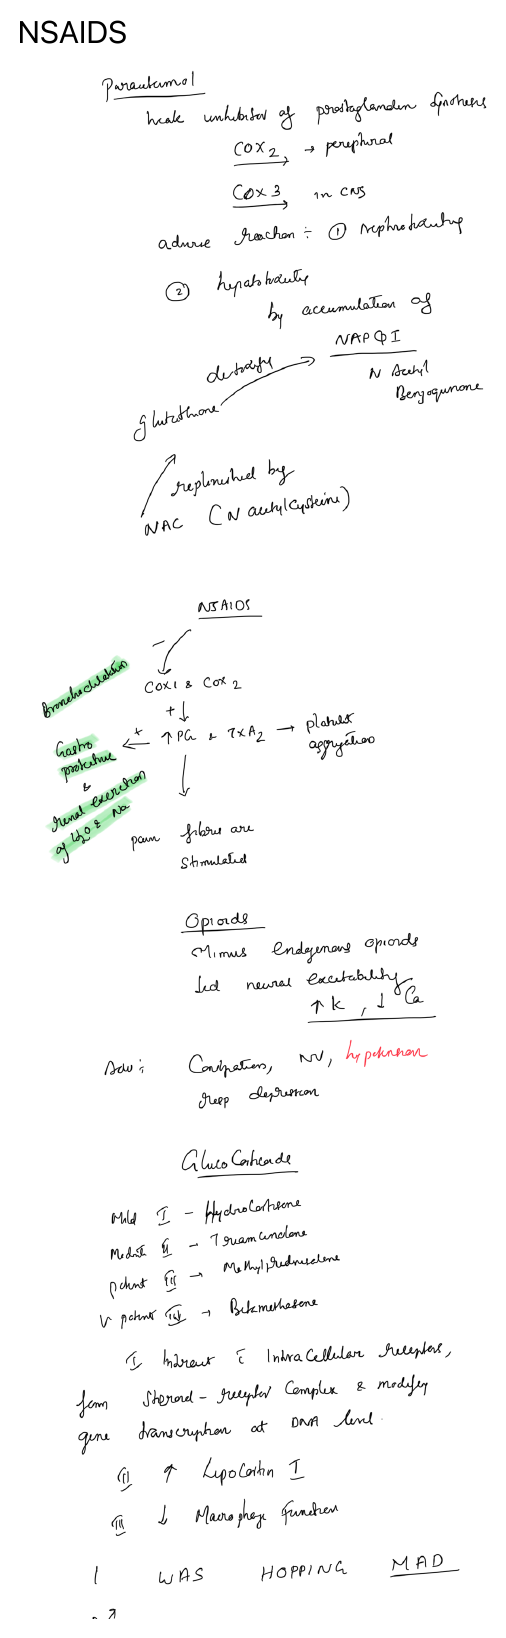 NSAIDS
Paracetamol
weak inhibitor of prostaglandin synthesis
COX 2 → peripheral
COX 3 in CNS
adverse reaction ÷ ① Nephrotoxicity
② hepatotoxicity
by accumulation of
NAPQI
detoxify
N Acetyl
Benzoquinone
glutathione
replenished by
NAC (N acetylcysteine)
NSAIDS
–
Bronchodilation
COX1 & COX 2
+ ↓
Gastro
protective
&
renal excretion
of H2O & Na
+ ← ↑ PG & TXA2 → platelet
aggregation
pain fibres are
stimulated
Opioids
Mimics endogenous opioids
↓ed neural excitability
↑ K, ↓ Ca
Adv: Constipation, NV, hypotension
resp depression
Gluco Corticoids
Mild I – Hydrocortisone
II – Triamcinolone
potent III → Methylprednisolone
V potent IV → Betamethasone
I Interact c̄ Intra Cellular receptors,
form Steroid – receptor Complex & modify
gene transcription at DNA level.
II ↑ Lipocortin I
III ↓ Macrophage function
I WAS HOPPING MAD